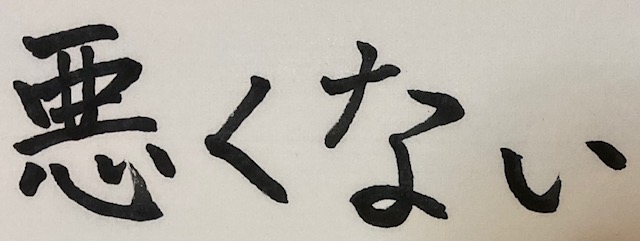 悪くない